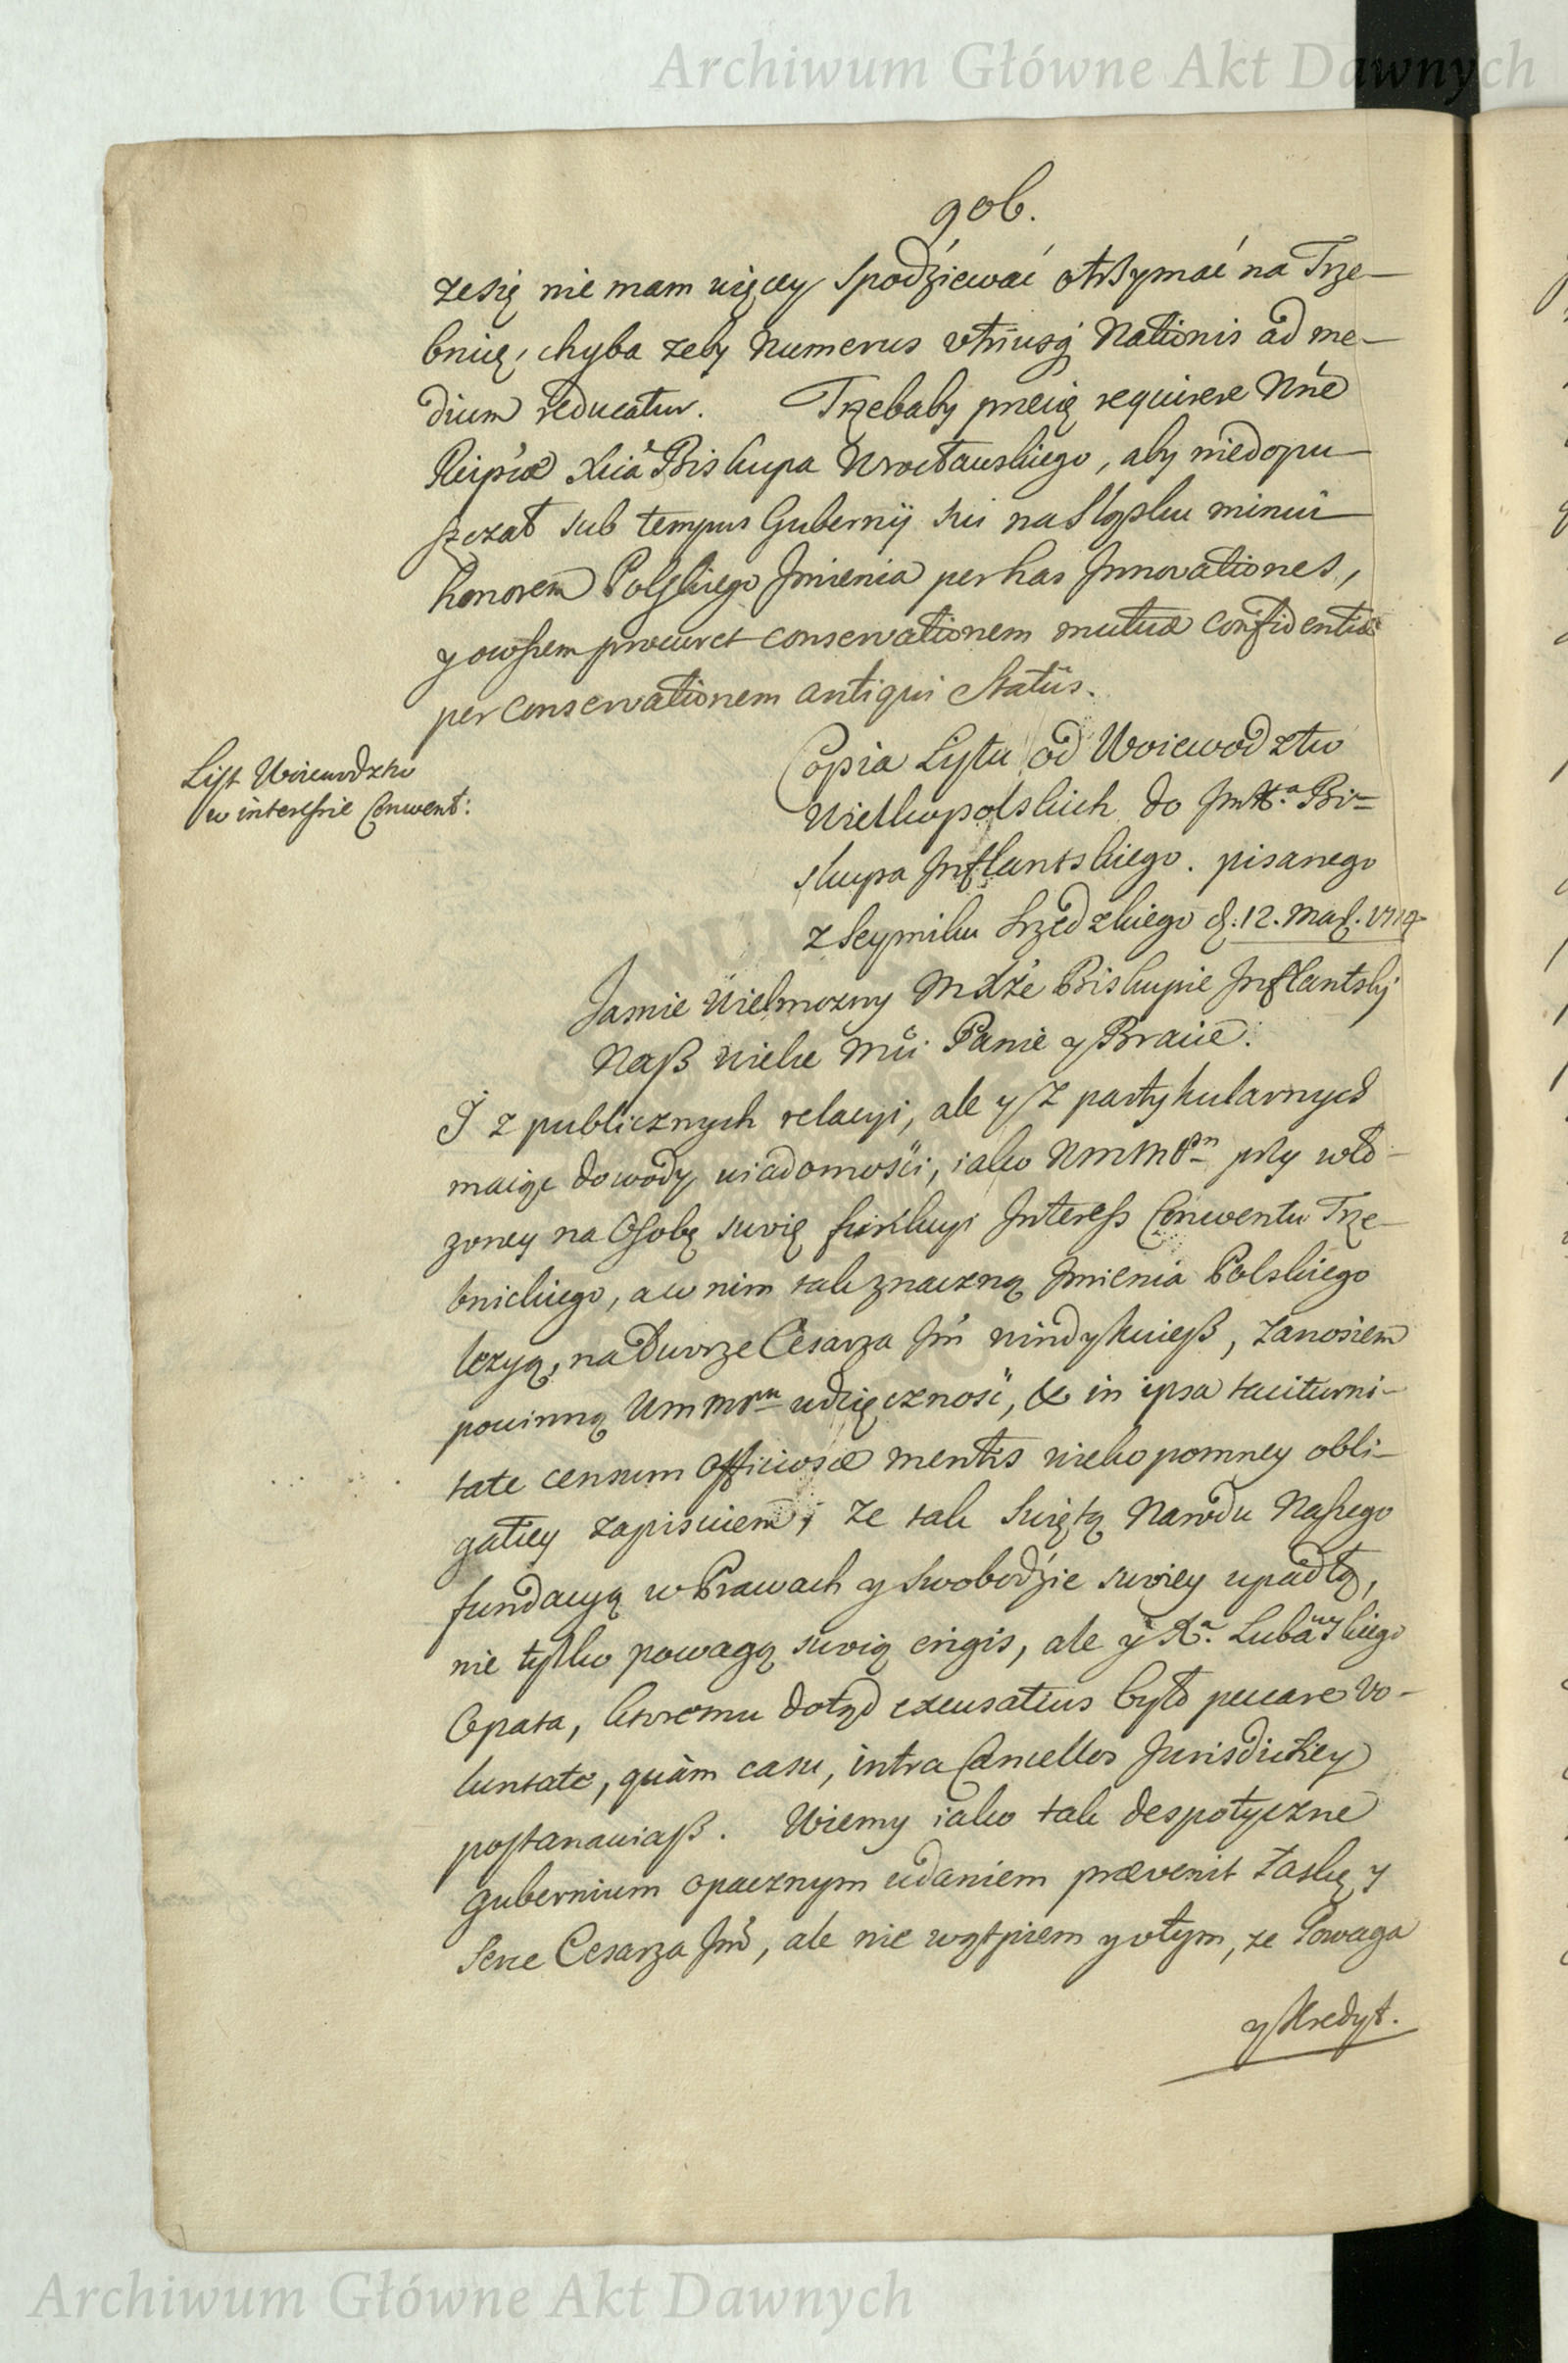 Archiwum Główne Akt Dawnych
906.
ze się nie mam więcey spodźiewać otrzymać na Trze-
bnicę, chyba zeby Numerus utriusq Nationis ad me-
dium reducatur. Trzebaby przecię requirere Nńe
Reip'cæ Xcia Biskupa Wrocławskiego, aby niedopu-
szczał sub tempus Gubernÿ sui na Sląsku minui
honorem Polskiego Jmienia per has Jnnovationes,
y owszem procuret conservationem mutuæ confidentiæ
per conservationem antiqui Statûs.
List Woiewodztw
w interessie Conwent:
Copia Listu od Woiewodztw
Wielkopolskich do JmXa Bi-
skupa Jnflantskiego. pisanego
z Seymiku Srzedzkiego d. 12. Mar. 1714
Jasnie Wielmozny MXże Biskupie Jnflantski
Nasz wielce Mći Panie y Bracie.
J z publicznych relacyi, ale y z partykularnych
maiąc dowody wiadomości, iako WMMPan przy wło-
zoney na Osobę swoię funkcyi Jnteress Conwentu Trze-
bnickiego, a w nim tak znaczną Jmienia Polskiego
lezyą, na Dworze Cesarza Jm windykuiesz, zanosiem
powinną WmMPan wdzięczność, & in ipsa taciturni-
tate censum officiosæ mentis wiekopomney obli-
gatiey zapisuiem, ze tak swiętą Narodu Naszego
fundacyą w Prawach y Swobodźie swoiey upadłą,
nie tylko powagą swoią erigis, ale y Xa Lubawskiego
Opata, ktoremu dotąd excusatius było peccare vo-
luntate, quàm casu, intra Cancellos Jurisdictiey
postanawiasz. Wiemy iako tak despotyczne
gubernium opacznym udaniem prævenit łaskę y
Serce Cesarza Jmć, ale nie wątpiem y o tym, ze Powaga
y Kredyt.
Archiwum Główne Akt Dawnych